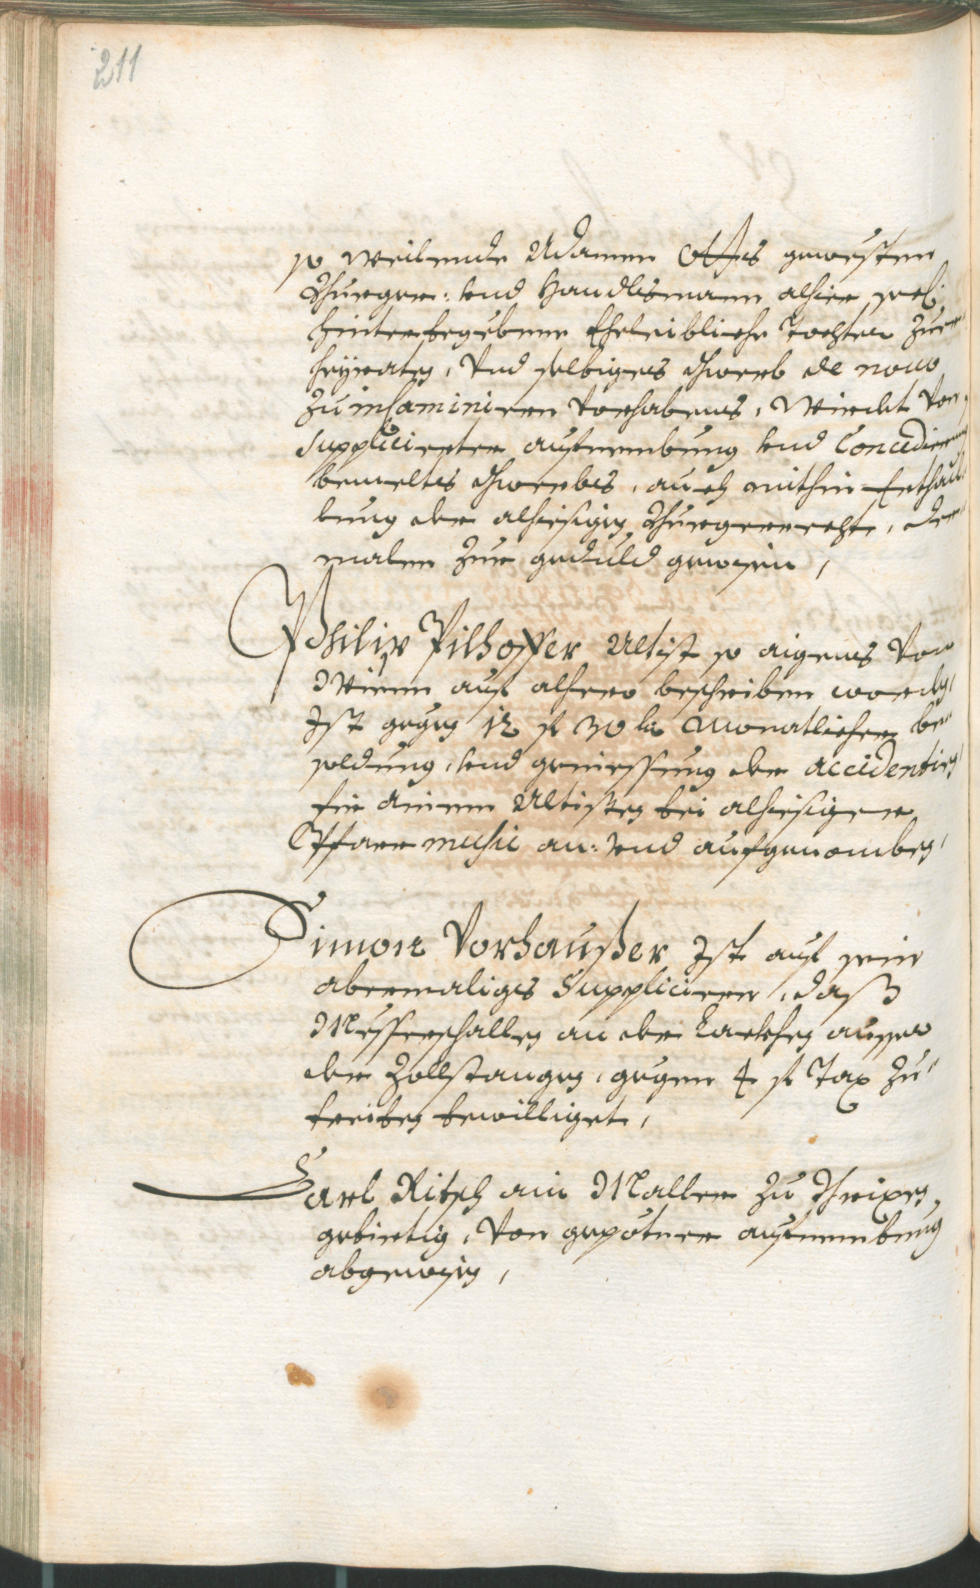 211
so weilende Adamen Ottes gewesten
Burger: und Handlsmann alhier seel:
hinterbegebene Eheleibliche Tochter zuer
heÿraten, Und selbiges Gwerb de novo
zu inhaminiren Vorhabens, Wirdet Von
Supplicierter aufnembung und Concedierung
bemeltes Gwerbs, auch mithin Erthail
lung der alhiesigen Burgerrecht, der
malen zur geduld gewisen,
Philip Pilhoffer Altist so aigens Von
Wienn auß alhero beschriben worden,
Ist gegen 12 fl 30 kr Monatlicher be
soldung, und geniessung der accidentien
für ainen Altisten bei alhiesiger
Pfarrmusic an: und aufgenomben,
Simon Vorhaußer Ist auf sein
abermaliges Supplicieren, daß
Messerschallen an der Lackhen ausser
der Zollstangen, gegen 4 fl Tax zu
treiben bewilliget,
Carl Ritsch ain Maller zu Brixen
gebirtig, Von gepotner aufnembung
abgewisen,